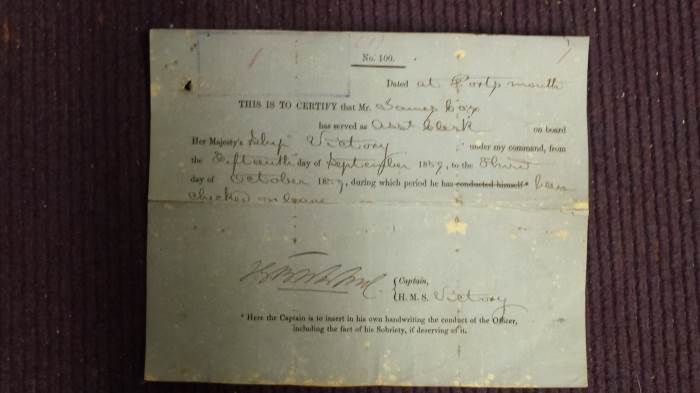 No. 100.
Dated at Portsmouth
THIS IS TO CERTIFY that Mr. James Cox
has served as Asst Clerk on board
Her Majesty's Ship Victory under my command, from
the fifteenth day of September 1859, to the third
day of October 1859, during which period he has conducted himself* been
checked on leave
Captain,
H. M. S. Victory
* Here the Captain is to insert in his own handwriting the conduct of the Officer,
including the fact of his Sobriety, if deserving of it.